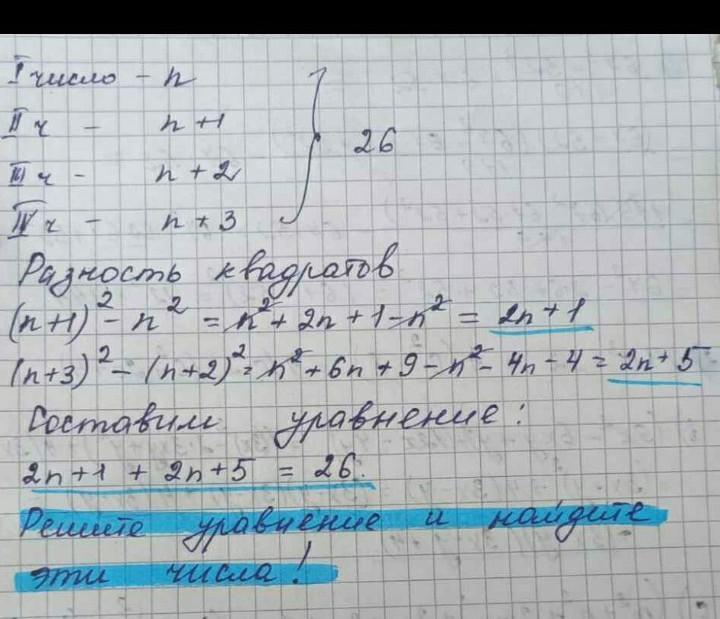 I число - n
II ч - n+1
III ч - n+2
IV ч - n+3
26
Разность квадратов
(n+1)² - n² = n² + 2n + 1 - n² = 2n+1
(n+3)² - (n+2)² = n² + 6n + 9 - n² - 4n - 4 = 2n+5
Составим уравнение:
2n+1 + 2n+5 = 26.
Решите уравнение и найдите
эти числа!